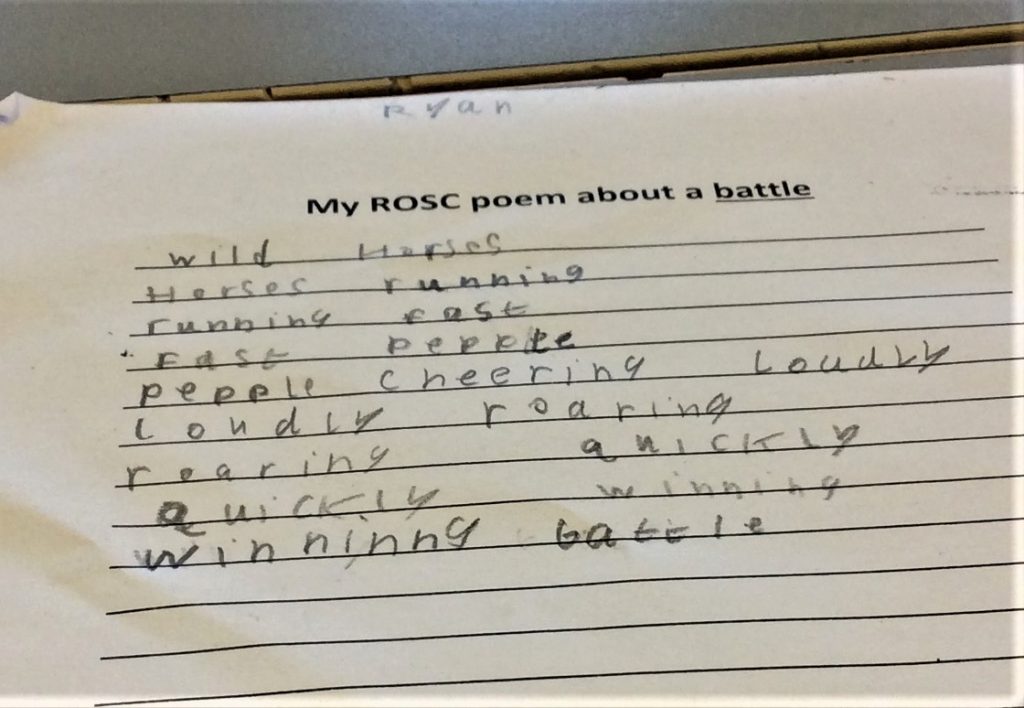 Ryan
My ROSC poem about a battle
wild Horses
Horses running
running fast
Fast people
people cheering Loudly
Loudly roaring
roaring quickly
Quickly winning
winning battle